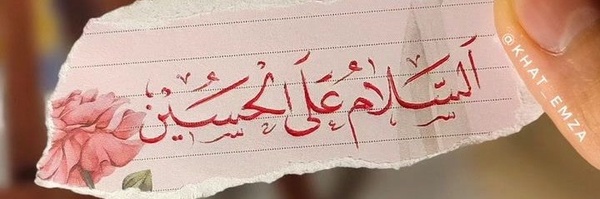 اَلسَّلامُ عَلَى الْحُسَيْن
@KHAT_EMZA